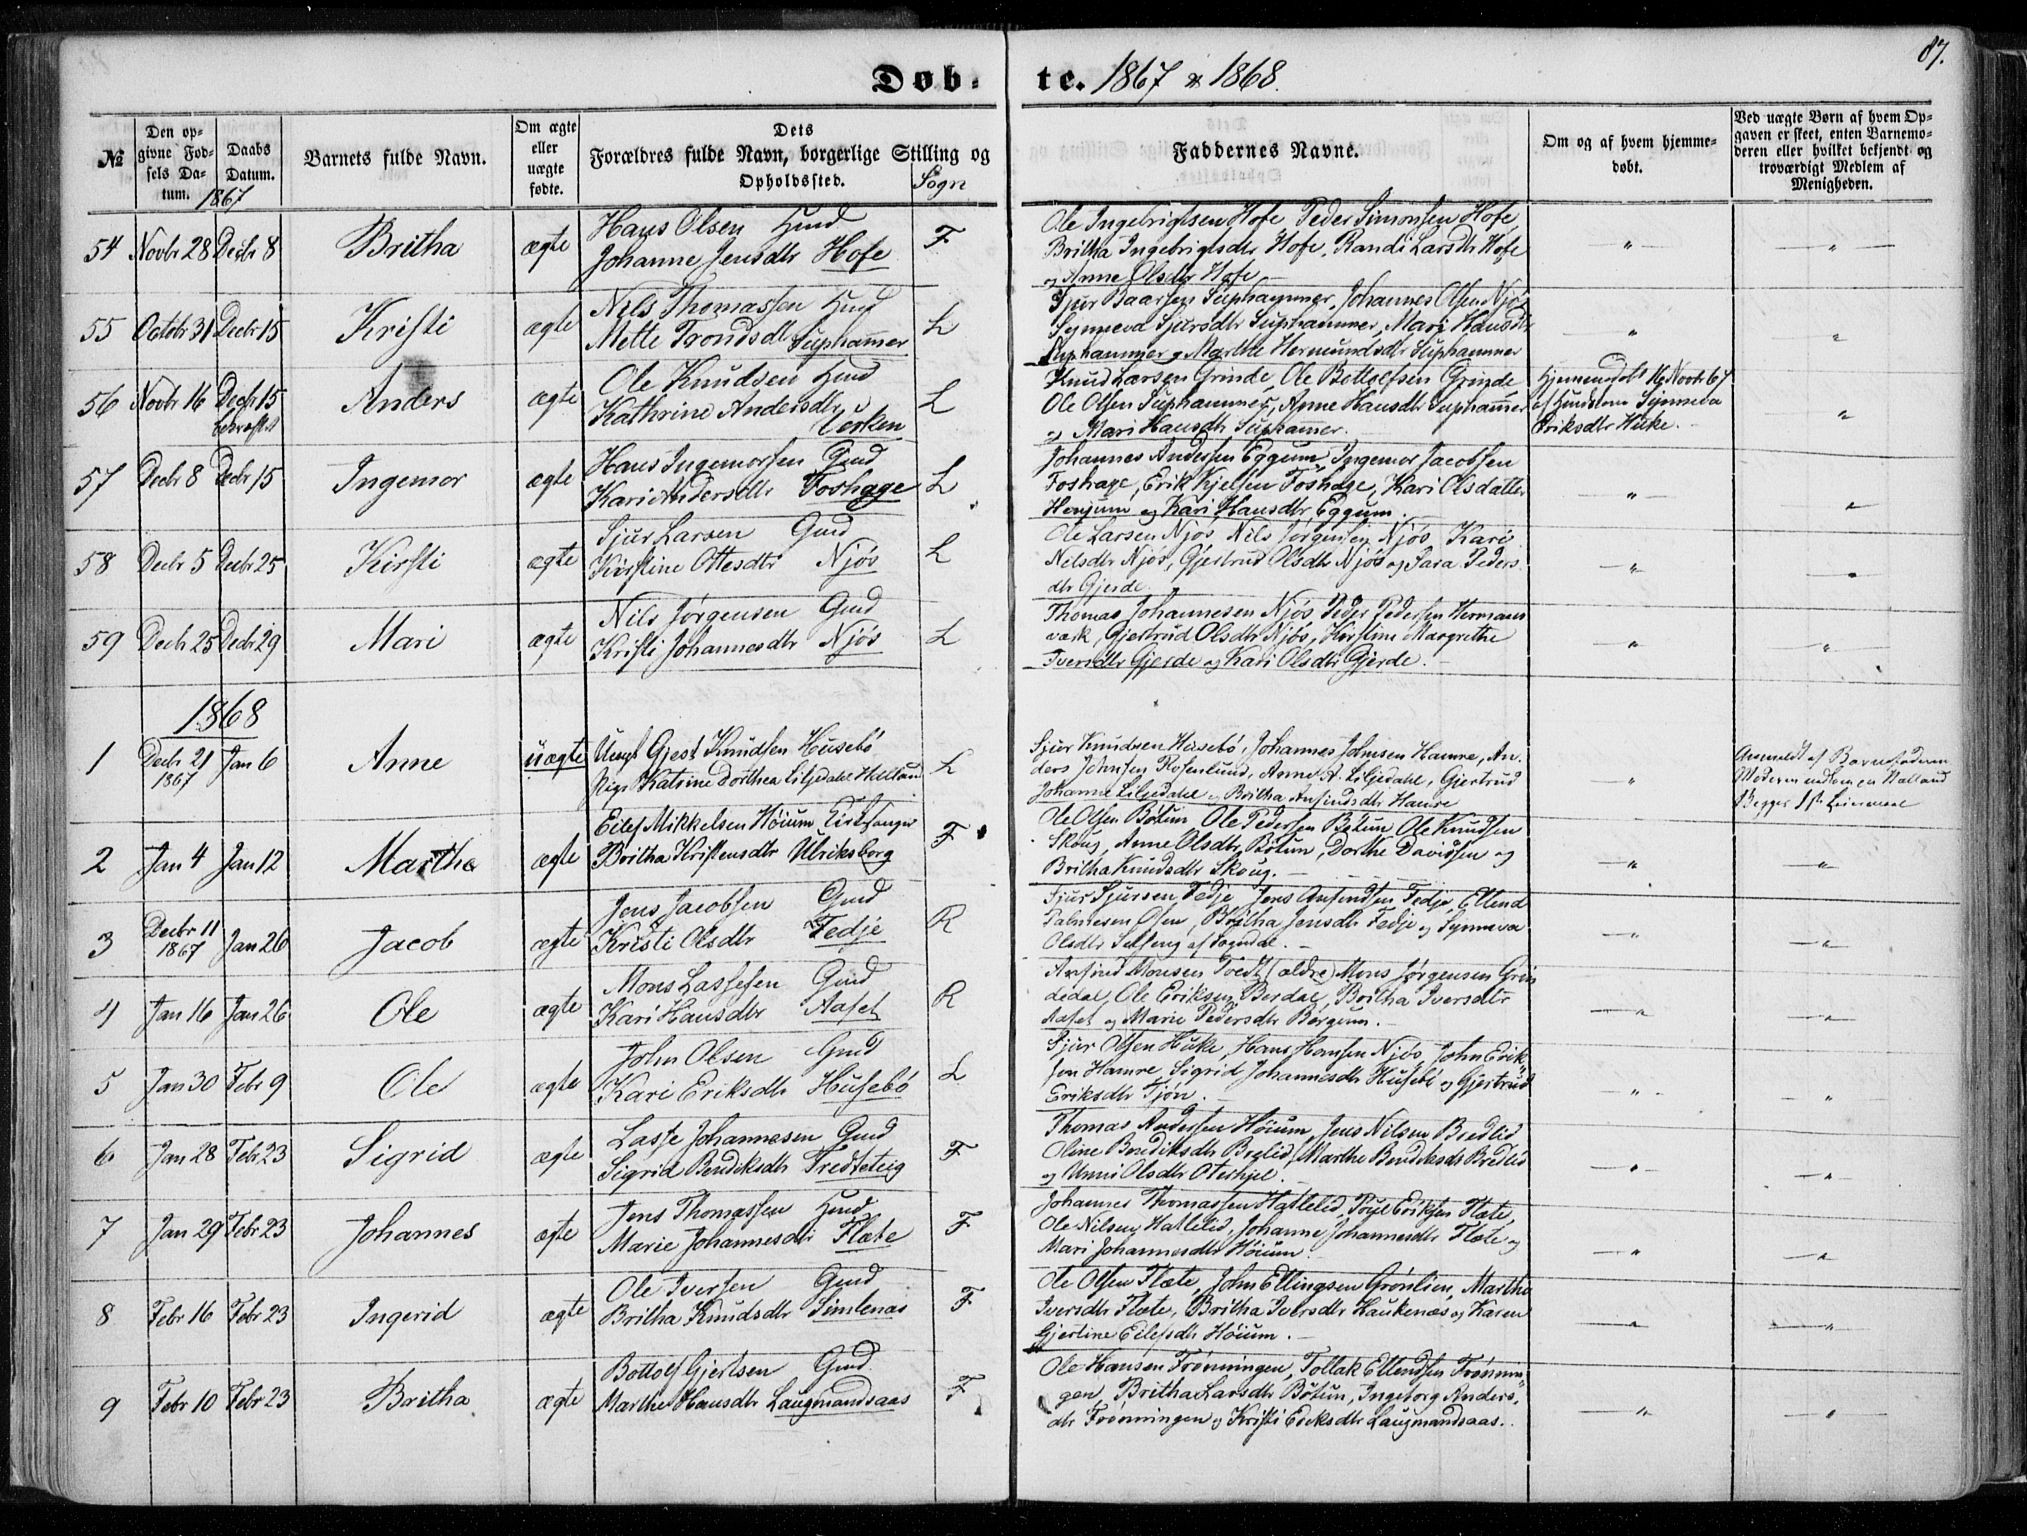 87.
Døb- te. 1867 & 1868.
№
Den op-
givne Fød-
sels Da-
tum.
1867
Daabs
Datum.
Barnets fulde Navn.
Om ægte
eller
uægte
fødte.
Dets
Forældres fulde Navn, borgerlige Stilling og
Opholdssted.
Sogn
Faddernes Navne.
Om og af hvem hjemme-
døbt.
Ved uægte Børn af hvem Op-
gaven er skeet, enten Barnemo-
deren eller hvilket bekjendt og
troværdigt Medlem af
Menigheden.
54 Novbr 28 Decbr 8 Britha ægte Hans Olsen Hmd
Johanne Jensdtr Hofe F
Ole Ingebrigtsen Hofe Peder Simonsen Hofe
Britha Ingebrigtsdtr Hofe, Randi Larsdtr Hofe
og Anne Olsdtr Hofe
55 Octobr 31 Decbr 15 Kristi ægte Nils Thomassen Hmd
Mette Trondsdtr Suphammer L
Sjur Baarsen Suphammer, Johannes Olsen Njøs
Synneva Sjursdtr Suphammer, Mari Hansdtr
Suphammer og Marthe Hermundsdtr Suphammer
56 Novbr 16 Decbr 15 Anders ægte Ole Knudsen Hmd
Kathrine Andersdtr L
Knud Larsen Grinde, Ole Bottolfsen Grinde
Ole Olsen Suphammer, Anne Hansdtr Suphammer
og Mari Hansdtr Suphammer.
Hjemmedøbt 16 Novbr 67
Synneva
Eriksdtr Huke.
57 Decbr 8 Decbr 15 Ingemor ægte Hans Ingemorsen Gmd
Kari Andersdtr Foshage L
Johannes Andersen Eggum, Ingemor Jacobsen
Foshage, Erik Kjelsen Foshage, Kari Olsdatter
Henjum og Kari Hansdtr Eggum.
58 Decbr 5 Decbr 25 Kirsti ægte Sjur Larsen Gmd
Kirstine Ottesdtr Njøs L
Ole Larsen Njøs, Nils Jørgensen Njøs, Kari
Nilsdtr Njøs, Gjertrud Olsdtr Njøs og Sara Peders
dtr Gjerde
59 Decbr 25 Decbr 29 Mari ægte Nils Jørgensen Gmd
Kristi Johannesdtr Njøs L
Thomas Johannesen Njøs, Peder Pedersen Hermans
værk, Gjertrud Olsdtr Njøs, Kirstine Margrethe
Iversdtr Gjerde og Kari Olsdtr Gjerde.
1868
1 Decbr 21 1867 Jan 6 Anne uægte Ungk Gjest Knudsen Husebø
Pige Katrine Dorthea Liljedahl Hælland L
Sjur Knudsen Husebø, Johannes Johnsen Hamre, An-
ders Johnsen Rosenlund, Anne A. Liljedahl, Gjertrud
Johanne Liljedahl og Britha Anfindsdtr Hamre
Anmeldt af Barnefaderen
Begges 1ste Leiermaal
2 Jan 4 Jan 12 Martha ægte Eilef Mikkelsen Høium Kirksanger
Britha Kristensdtr Ulriksborg F
Ole Olsen Bøtun, Ole Pedersen Bøtun, Ole Knudsen
Skoug, Anne Olsdtr Bøtun, Dorthe Davidsen og
Britha Knudsdtr Skoug.
3 Decbr 11 1867 Jan 26 Jacob ægte Jens Jacobsen Gmd
Kristi Olsdtr Fedje R
Sjur Sjursen Fedje, Jens Anfindsen Fedje, Ellend
Palnesen Olsen, Britha Jensdtr Fedje og Synneva
Olsdtr Selseng af Sogndal.
4 Jan 16 Jan 26 Ole ægte Mons Lassesen Gmd
Kari Hansdtr Aaset R
Anfind Monsen Tvedt (ældre) Mons Jørgensen Grin
dedal, Ole Eriksen Berdal, Britha Iversdtr
Aaset og Marie Pedersdtr Børgum.
5 Jan 30 Febr 9 Ole ægte John Olsen Gmd
Kari Eriksdtr Husebø L
Sjur Olsen Huke, Hans Hansen Njøs, John Erik
sen Hamre, Sigrid Johannesdtr Husebø og Gjertrud
Eriksdtr Tjøn.
6 Jan 28 Febr 23 Sigrid ægte Lasse Johannesen Gmd
Sigrid Bendiksdtr Tredteteig F
Thomas Andersen Høium, Jens Nilsen Bredlid
Oline Bendiksdtr Bredlid, Marthe Bendiksdtr Bredlid
og Unni Olsdtr Oterhjel.
7 Jan 29 Febr 23 Johannes ægte Jens Thomassen Hmd
Marie Johannesdtr Flæte F
Johannes Thomassen Hatlelid, Eriksen Flæte,
Ole Nilsen Hatlelid, Johanne Johannesdtr Flæte og
Mari Johannesdtr Høium.
8 Febr 16 Febr 23 Ingerid ægte Ole Iversen Gmd
Britha Knudsdtr Simlenæs F
Ole Olsen Flæte, John Ellingsen Grønlien, Marthe
Iversdtr Flæte, Britha Iversdtr Haukenæs og Karen
Gjertine Eilefsdtr Høium.
9 Febr 10 Febr 23 Britha ægte Bottolf Gjertsen Gmd.
Marthe Hansdtr Laugmandsaas F
Ole Hansen Frønningen, Tollak Ellendsen Frønnin
gen, Britha Larsdtr Bøtun, Ingeborg Anders-
dtr Frønningen og Kristi Eriksdtr Laugmandsaas.